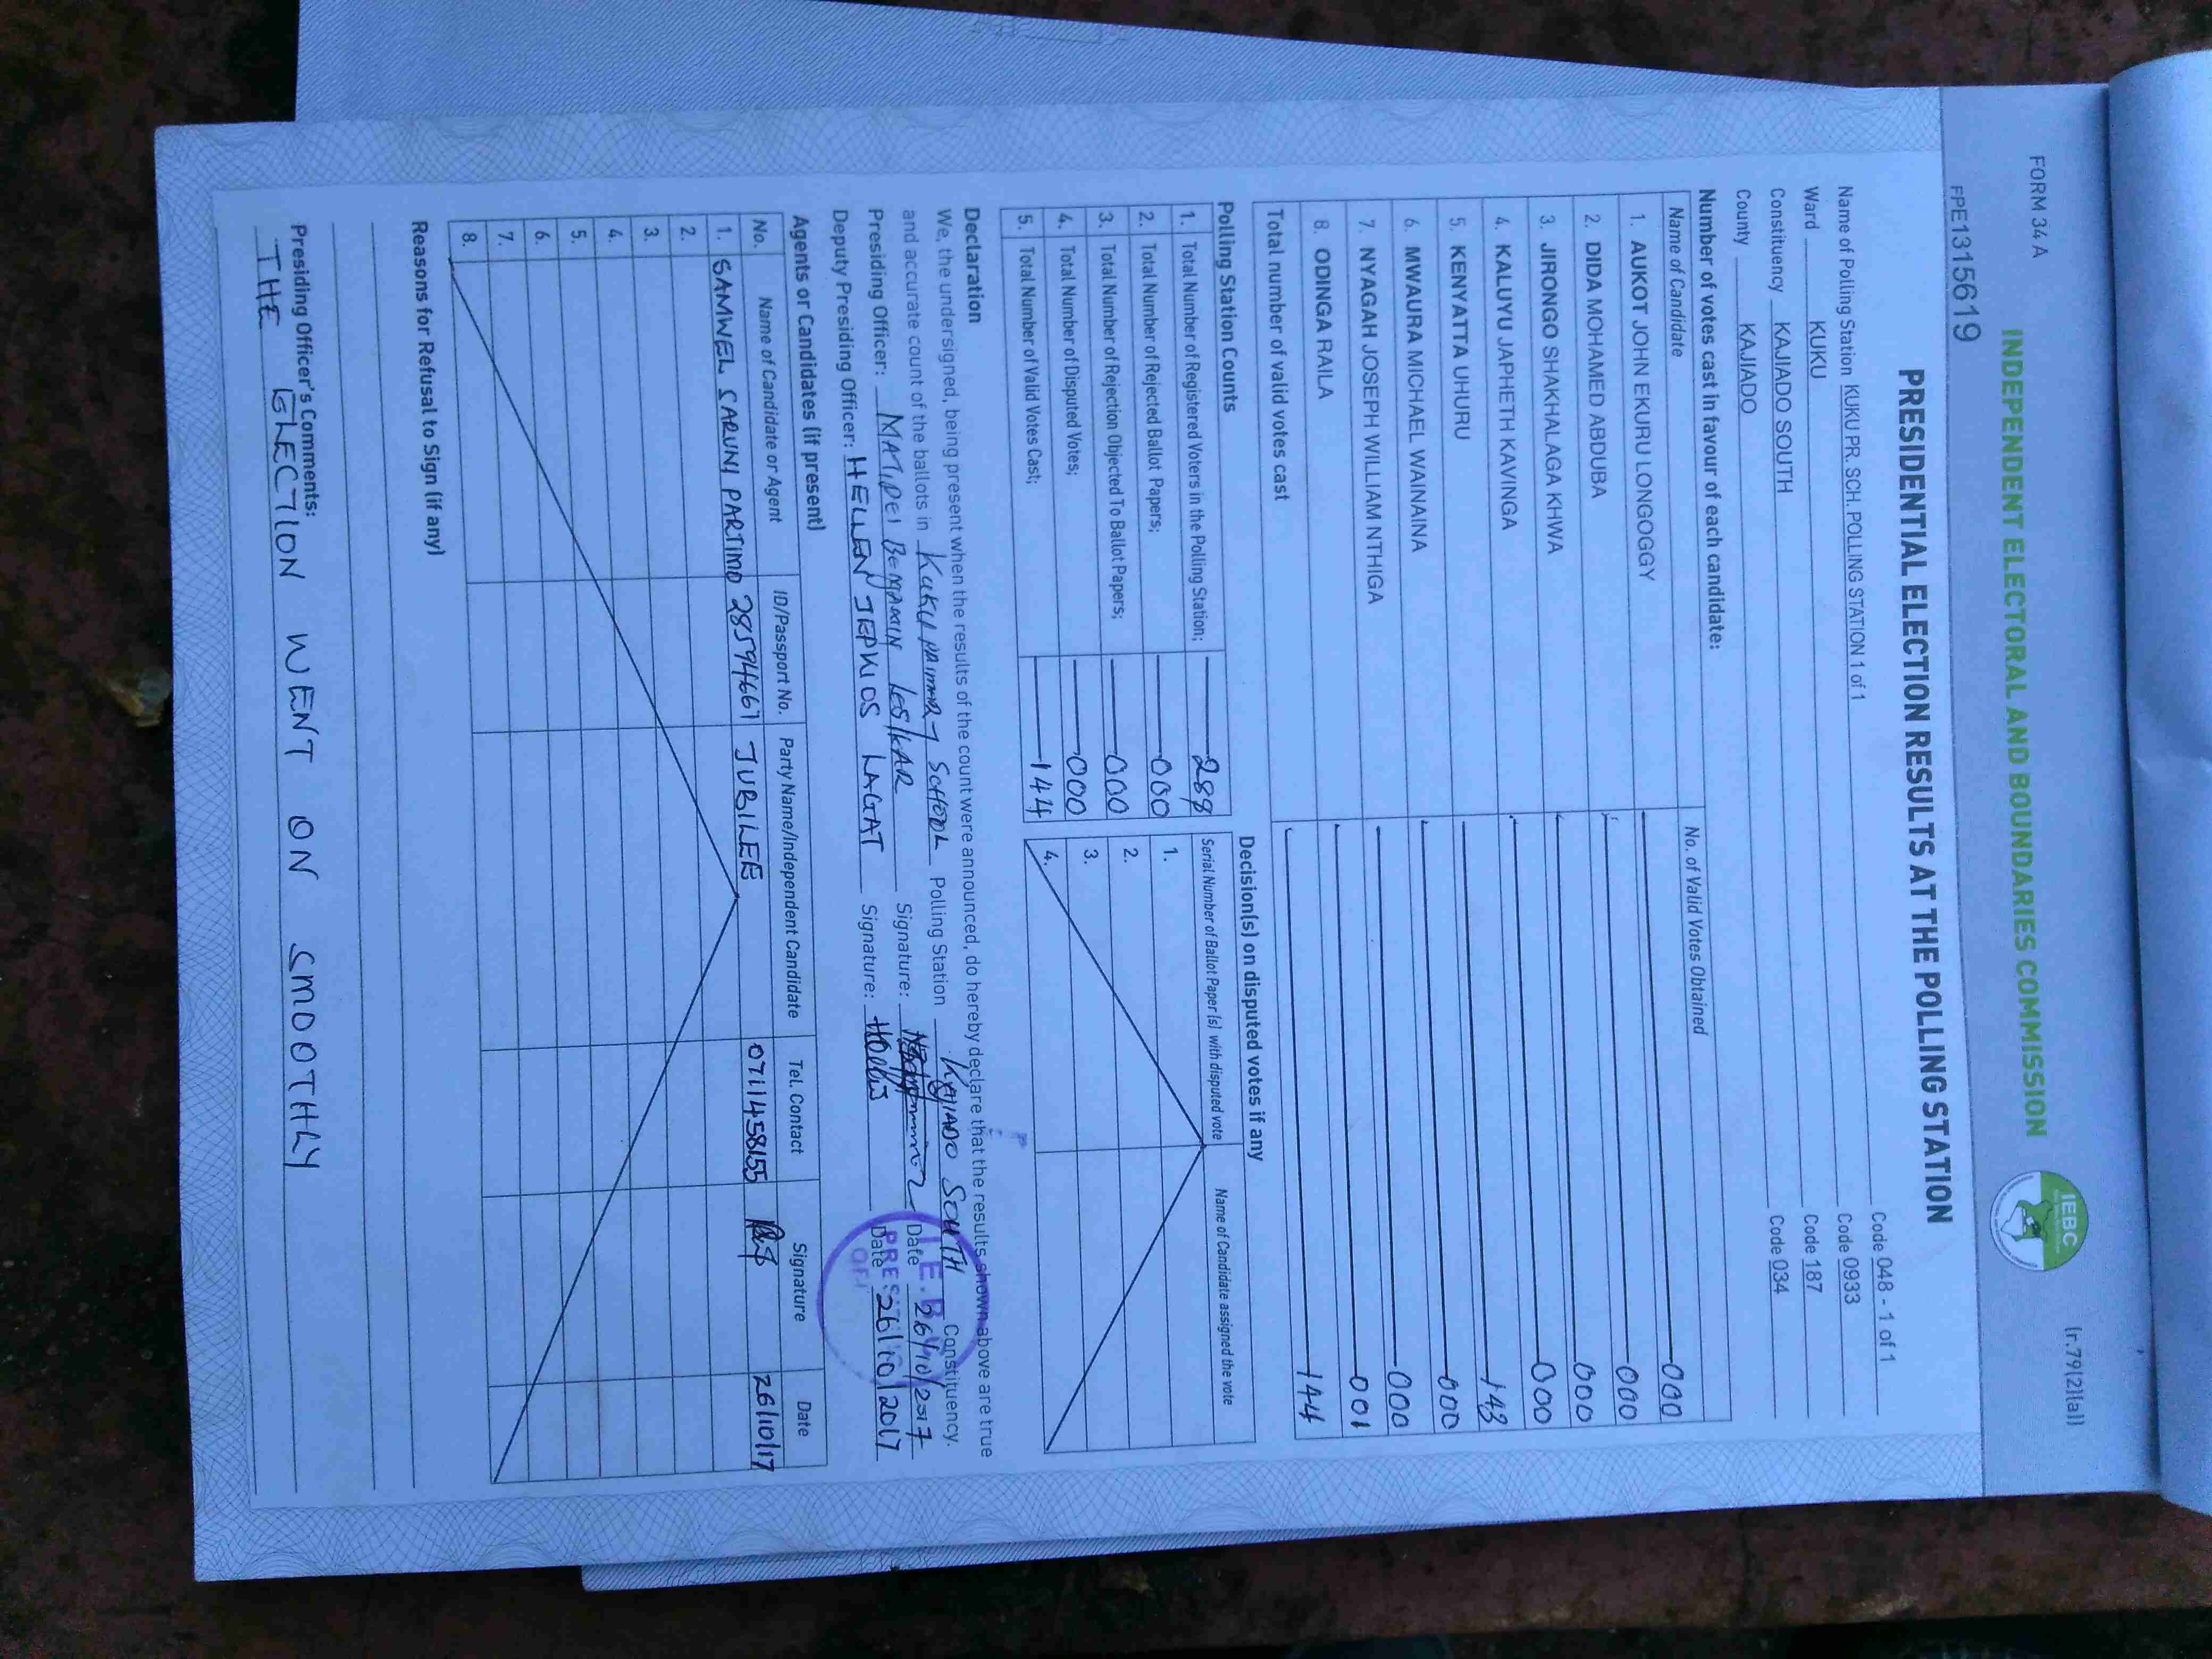 FORM 34 A
(r.79(2)(a))
INDEPENDENT ELECTORAL AND BOUNDARIES COMMISSION
IEBC
FPE1315619
PRESIDENTIAL ELECTION RESULTS AT THE POLLING STATION
Name of Polling Station KUKU PR. SCH. POLLING STATION 1 of 1 Code 048 - 1 of 1
Ward KUKU Code 0933
Constituency KAJIADO SOUTH Code 187
County KAJIADO Code 034
Number of votes cast in favour of each candidate:
Name of Candidate No. of Valid Votes Obtained
1. AUKOT JOHN EKURU LONGOGGY 000
2. DIDA MOHAMED ABDUBA 000
3. JIRONGO SHAKHALAGA KHWA 000
4. KALUYU JAPHETH KAVINGA 000
5. KENYATTA UHURU 143
6. MWAURA MICHAEL WAINAINA 000
7. NYAGAH JOSEPH WILLIAM NTHIGA 000
8. ODINGA RAILA 001
Total number of valid votes cast 144
Polling Station Counts
1. Total Number of Registered Voters in the Polling Station; 288
2. Total Number of Rejected Ballot Papers; 000
3. Total Number of Rejection Objected To Ballot Papers; 000
4. Total Number of Disputed Votes; 000
5. Total Number of Valid Votes Cast; 144
Decision(s) on disputed votes if any
Serial Number of Ballot Paper(s) with disputed vote Name of Candidate assigned the vote
1.
2.
3.
4.
Declaration
We, the undersigned, being present when the results of the count were announced, do hereby declare that the results shown above are true
and accurate count of the ballots in KUKU PRIMARY SCHOOL Polling Station KAJIADO SOUTH Constituency.
Presiding Officer: BENJAMIN Signature: Date 26/10/2017
Deputy Presiding Officer: HELLEN JEPKIOS LAGAT Signature: Date 26/10/2017
I.E.B.C
PRESIDING
Agents or Candidates (if present)
No. Name of Candidate or Agent ID/Passport No. Party Name/Independent Candidate Tel. Contact Signature Date
1. SAMWEL SARUNI PARTIMO 28594661 JUBILEE 0711458155 26/10/17
2.
3.
4.
5.
6.
7.
8.
Reasons for Refusal to Sign (if any)
Presiding Officer's Comments:
THE ELECTION WENT ON SMOOTHLY